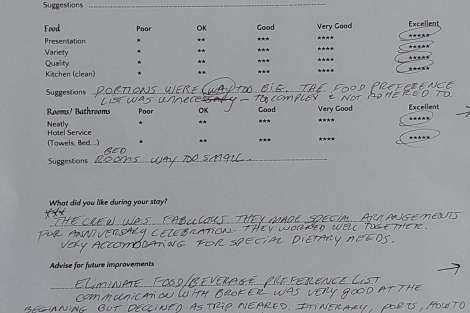 Suggestions
Food Poor OK Good Very Good Excellent
Presentation * ** *** **** *****
Variety * ** *** **** *****
Quality * ** *** **** *****
Kitchen (clean) * ** *** **** *****
Suggestions PORTIONS WERE WAY TOO BIG. THE FOOD PREFERENCE
LIST WAS UNNECESSARY - TOO COMPLEX & NOT ADHERED TO.
Rooms/ Bathrooms Poor OK Good Very Good Excellent
Neatly * ** *** **** *****
Hotel Service
(Towels, Bed...) * ** *** **** *****
BED
Suggestions ROOMS WAY TOO SMALL.
What did you like during your stay?
THE CREW WAS FABULOUS. THEY MADE SPECIAL ARRANGEMENTS
FOR ANNIVERSARY CELEBRATION. THEY WORKED WELL TOGETHER.
VERY ACCOMODATING FOR SPECIAL DIETARY NEEDS.
Advise for future improvements
ELIMINATE FOOD/BEVERAGE PREFERENCE LIST
COMMUNICATION WITH BROKER WAS VERY GOOD AT THE
BEGINNING BUT DECLINED AS TRIP NEARED. ITINERARY, PORTS, HOW TO